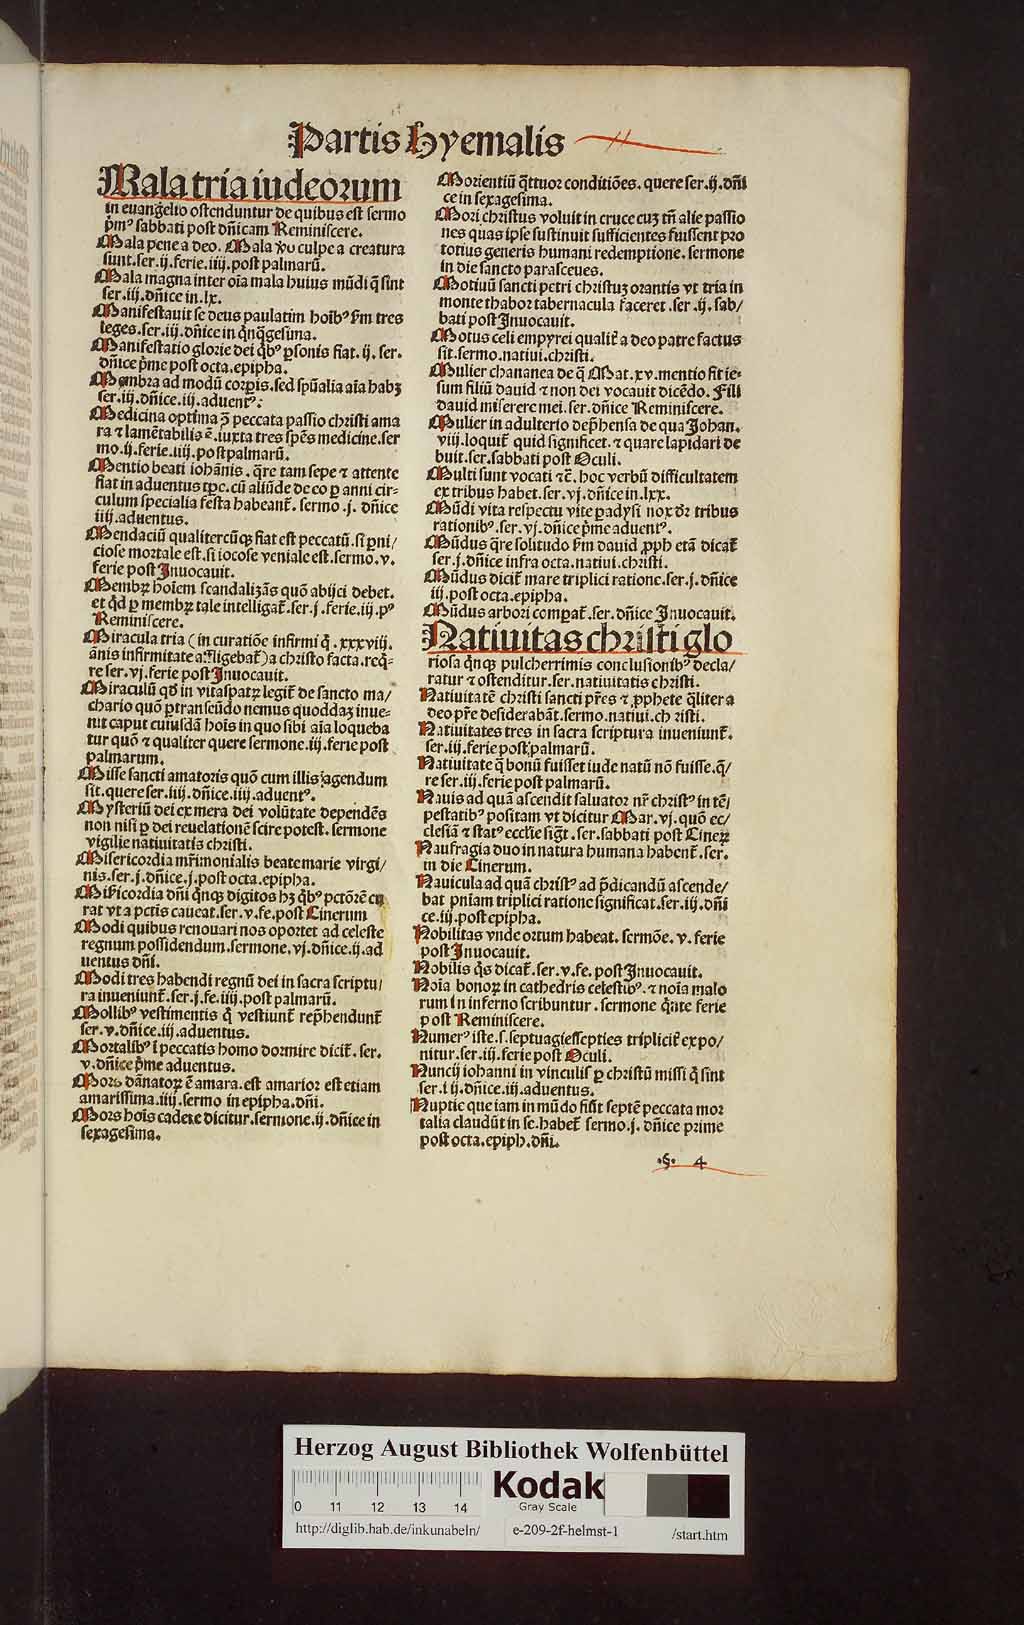 Partis hyemalis
Mala tria iudeorum
in euangelio ostenduntur de quibus est sermo
p̄mꝰ sabbati post dñicam Reminiscere.
Mala pene a deo. Mala ꝟo culpe a creatura
sunt.ser.ij.ferie.iiij.post palmarū.
Mala magna inter oīa mala huius mūdi q̄ sint
ser.iij.dñice in.lx.
Manifestauit se deus paulatim hoībꝰ fm tres
leges.ser.iij.dñice in q̄nq̄gesima.
Manifestatio glorie dei q̄bꝰ ꝑsonis fiat.ij.ser.
dñice p̄me post octa.epipha.
Membra ad modū corꝑis.sed spūalia aīa habꝫ
ser.iij.dñice.iij.aduentꝰ.
Medicina optima ↄ̄ peccata passio christi ama
ra ⁊ lamētabilis ē.iuxta tres spēs medicine.ser
mo.ij.ferie.iiij.post palmarū.
Mentio beati iohānis.q̄re tam sepe ⁊ attente
fiat in aduentus tꝑe.cū aliūde de eo ꝑ anni cir-
culum specialia festa habeant̄.sermo.j.dñice
iiij.aduentus.
Mendaciū qualitercūqꝫ fiat est peccatū.si ꝑni/
ciose mortale est.si iocose veniale est.sermo.v.
ferie post Inuocauit.
Membꝝ hoīem scandalizās quō abijci debet.
et qd̄ ꝑ membꝝ tale intelligat̄.ser.j.ferie.iij.pꝰ
Reminiscere.
Miracula tria (in curatiōe infirmi q̄.xxxviij.
ānis infirmitate affligebat̄) a christo facta.req̄-
re ser.vj.ferie post Inuocauit.
Miraculū qd̄ in vitaspatꝝ legit̄ de sancto ma/
chario quō ꝑtranseūdo nemus quoddaꝫ inue-
nit caput cuiusdā hoīs in quo sibi aīa loqueba
tur quō ⁊ qualiter quere sermone.iij.ferie post
palmarum.
Misse sancti amatoris quō cum illis agendum
sit.quere ser.iiij.dñice.iiij.aduentꝰ.
Mysteriū dei ex mera dei volūtate dependēs
non nisi ꝑ dei reuelationē scire potest.sermone
vigilie natiuitatis christi.
Misericordia mr̄imonialis beate marie virgi/
nis.ser.j.dñice.j.post octa.epipha.
Mīcordia dn̄i q̄nqꝫ digitos hꝫ q̄bꝰ pctōrē cu
rat vt a pctis caueat.ser.v.fe.post Cinerum
Modi quibus renouari nos oportet ad celeste
regnum possidendum.sermone.vj.dñice.ij.ad
uentus dn̄i.
Modi tres habendi regnū dei in sacra scriptu/
ra inueniunt̄.ser.j.fe.iiij.post palmarū.
Mollibꝰ vestimentis q̄ vestiunt̄ rep̄hendunt̄
ser.v.dñice.iij.aduentus.
Mortalibꝰ ī peccatis homo dormire dicit̄.ser.
v.dñice p̄me aduentus.
Mors dānatoꝝ ē amara.est amarior est etiam
amarissima.iiij.sermo in epipha.dn̄i.
Mors hoīs cadere dicitur.sermone.ij.dñice in
sexagesima.
Morientiū q̄ttuor conditiōes.quere ser.ij.dn̄i
ce in sexagesima.
Mori christus voluit in cruce cuꝫ tn̄ alie passio
nes quas ipse sustinuit sufficientes fuissent pro
totius generis humani redemptione.sermone
in die sancto parasceues.
Motiuū sancti petri christuꝫ orantis vt tria in
monte thabor tabernacula faceret.ser.ij.sab/
bati post Inuocauit.
Motus celi empyrei qualit̄ a deo patre factus
sit.sermo.natiui.christi.
Mulier chananea de q̄ Mat.xv.mentio fit ie-
sum filiū dauid ⁊ non dei vocauit dicēdo. Fili
dauid miserere mei.ser.dñice Reminiscere.
Mulier in adulterio dep̄hensa de qua Johan.
viij.loquit̄ quid significet.⁊ quare lapidari de
buit.ser.sabbati post Oculi.
Multi sunt vocati ⁊c̄.hoc verbū difficultatem
ex tribus habet.ser.vj.dñice in.lxx.
Mūdi vita respectu vite ꝑadysi nox dr̄ tribus
rationibꝰ.ser.vj.dñice p̄me aduentꝰ.
Mūdus q̄re solitudo fm dauid ꝓph etā dicat̄
ser.j.dñice infra octa.natiui.christi.
Mūdus dicit̄ mare triplici ratione.ser.j.dñice
iij.post octa.epipha.
Mūdus arbori comꝑat̄.ser.dñice Inuocauit.
Natiuitas christi glo
riosa q̄nqꝫ pulcherrimis conclusionibꝰ decla/
ratur ⁊ ostenditur.ser.natiuitatis christi.
Natiuitatē christi sancti pr̄es ⁊ ꝓphete q̄liter a
deo pr̄e desiderabāt.sermo.natiui.ch risti.
Natiuitates tres in sacra scriptura inueniunt̄.
ser.iij.ferie post palmarū.
Natiuitate q̄ bonū fuisset iude natū nō fuisse.q̄/
re ser.iij.ferie post palmarū.
Nauis ad quā ascendit saluator nr̄ christꝰ in tē/
pestatibꝰ positam vt dicitur Mar.vj.quō ec/
clesiā ⁊ statꝰ ecclie sigt̄.ser.sabbati post Cineꝝ
Naufragia duo in natura humana habent̄.ser.
in die Cinerum.
Nauicula ad quā christꝰ ad p̄dicandū ascende/
bat pn̄iam triplici ratione significat.ser.iij.dn̄i
ce.iij.post epipha.
Nobilitas vnde ortum habeat.sermōe.v.ferie
post Inuocauit.
Nobilis q̄s dicat̄.ser.v.fe.post Inuocauit.
Noīa bonoꝝ in cathedris celestibꝰ.⁊ noīa malo
rum in inferno scribuntur.sermone q̄nte ferie
post Reminiscere.
Numerꝰ iste.s.septuagiessepties triplicit̄ expo/
nitur.ser.iij.ferie post Oculi.
Nuncij iohanni in vinculis ꝑ christū missi q̄ sint
ser.i ij.dñice.iij.aduentus.
Nuptie que iam in mūdo fiūt septē peccata mor
talia claudūt in se.habet̄ sermo.j.dñice prime
post octa.epiph.dn̄i.
.§. 4
Herzog August Bibliothek Wolfenbüttel
Kodak
Gray Scale
0 11 12 13 14
http://diglib.hab.de/inkunabeln/ e-209-2f-helmst-1 /start.htm